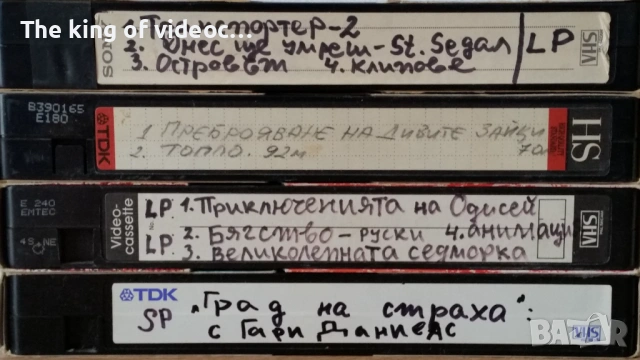 The king of videoc...:)
SONY
1. Транспортер-2
2. Днес ще умреш - St. Segal
3. Островът 4. Клипове
LP
VHS
B390165
E180
TDK
1 ПРЕБРОЯВАНЕ НА ДИВИТЕ ЗАЙЦИ
2. ТОПЛО. 92м 70м
HS
E 240
EMTEC
Video-cassette
LP 1. Приключенията на Одисей
LP 2. Бягство - руски 4. анимаци
3. Великолепната седморка
VHS
TDK
SP
"Град на страха":
с Гари Даниелс
VHS
bazar.bg